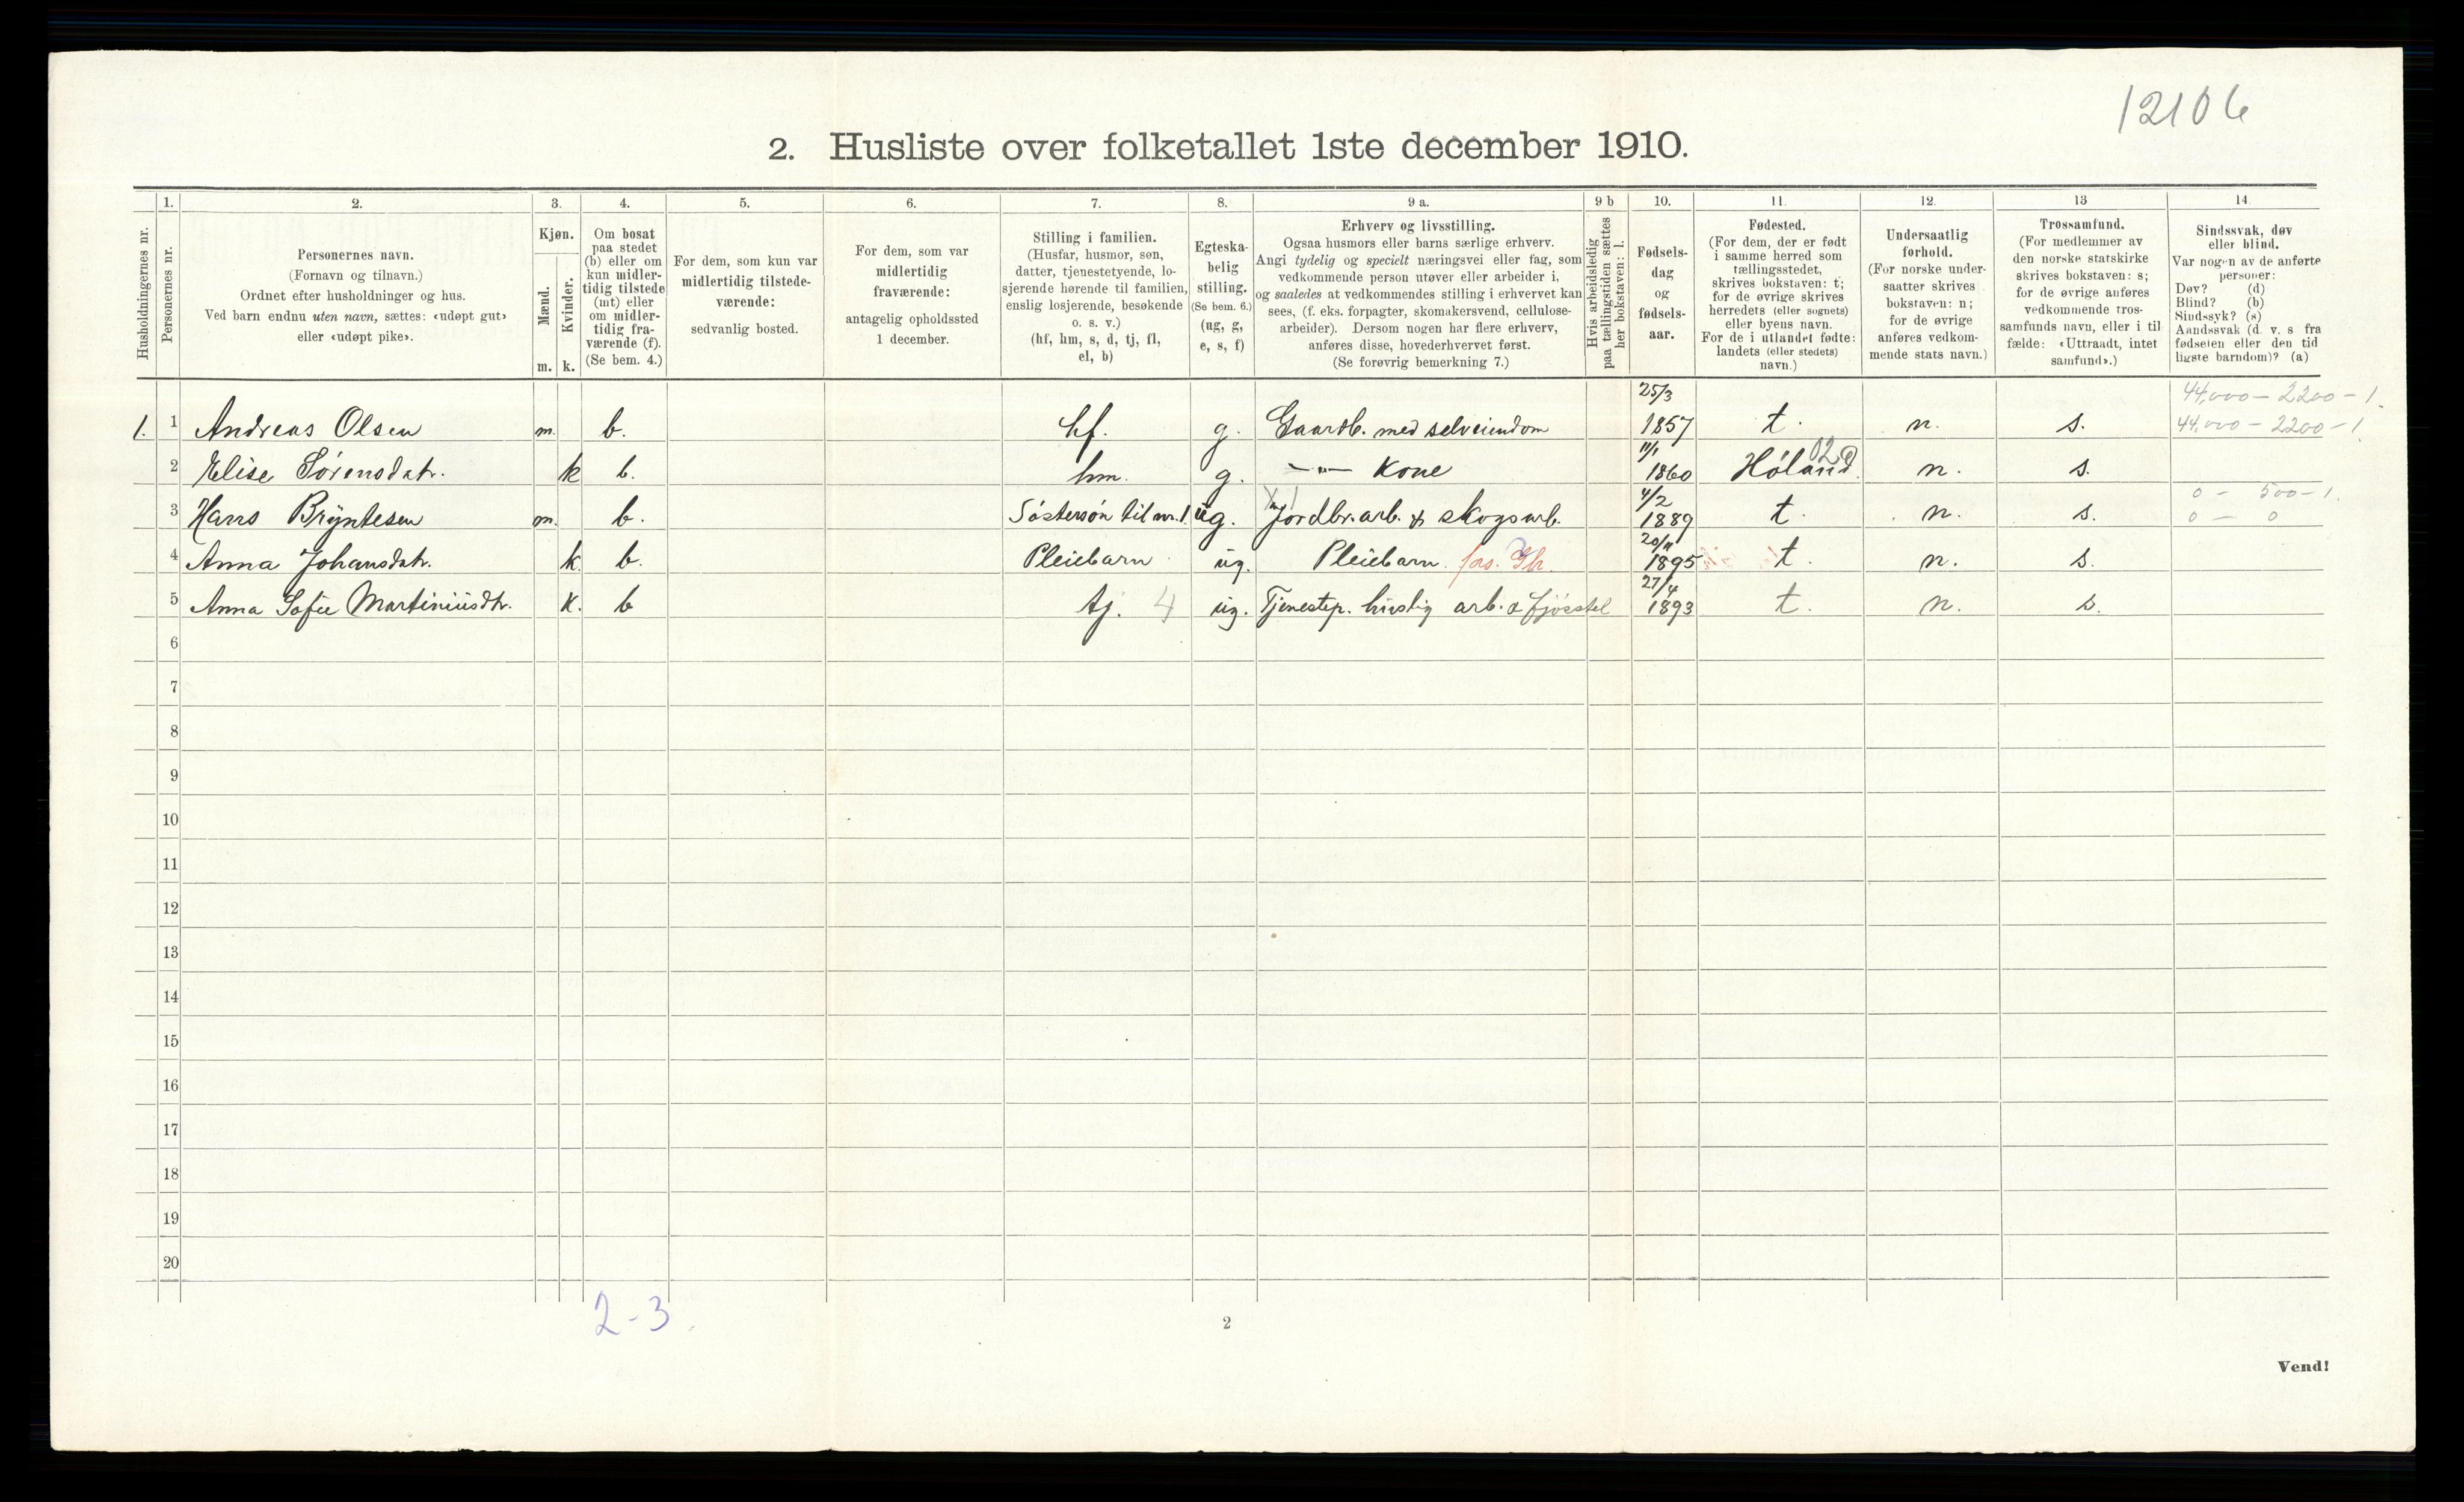 12106
2. Husliste over folketallet 1ste december 1910.
Husholdningernes nr.
1.
Personernes nr.
2.
Personernes navn.
(Fornavn og tilnavn.)
Ordnet efter husholdninger og hus.
Ved barn endnu uten navn, sættes: «udøpt gut»
eller «udøpt pike».
3.
Kjøn.
Mænd.
Kvinder.
m. k.
4.
Om bosat
paa stedet
(b) eller om
kun midler-
tidig tilstede
(mt) eller
om midler-
tidig fra-
værende (f).
(Se bem. 4.)
5.
For dem, som kun var
midlertidig tilstede-
værende:
sedvanlig bosted.
6.
For dem, som var
midlertidig
fraværende:
antagelig opholdssted
1 december.
7.
Stilling i familien.
(Husfar, husmor, søn,
datter, tjenestetyende, lo-
sjerende hørende til familien,
enslig losjerende, besøkende
o. s. v.)
(hf, hm, s, d, tj, fl,
el, b)
8.
Egteska-
belig
stilling.
(Se bem. 6.)
(ug, g,
e, s, f)
9 a.
Erhverv og livsstilling.
Ogsaa husmors eller barns særlige erhverv.
Angi tydelig og specielt næringsvei eller fag, som
vedkommende person utøver eller arbeider i,
og saaledes at vedkommendes stilling i erhvervet kan
sees, (f. eks. forpagter, skomakersvend, cellulose-
arbeider). Dersom nogen har flere erhverv,
anføres disse, hovederhvervet først.
(Se forøvrig bemerkning 7.)
9 b
Hvis arbeidsledig
paa tællingstiden sættes
her bokstaven: l.
10.
Fødsels-
dag
og
fødsels-
aar.
11.
Fødested.
(For dem, der er født
i samme herred som
tællingsstedet,
skrives bokstaven: t;
for de øvrige skrives
herredets (eller sognets)
eller byens navn.
For de i utlandet fødte:
landets (eller stedets)
navn.)
12.
Undersaatlig
forhold.
(For norske under-
saatter skrives
bokstaven: n;
for de øvrige
anføres vedkom-
mende stats navn.)
13
Trossamfund.
(For medlemmer av
den norske statskirke
skrives bokstaven: s;
for de øvrige anføres
vedkommende tros-
samfunds navn, eller i til
fælde: «Uttraadt, intet
samfund».)
14.
Sindssvak, døv
eller blind.
Var nogen av de anførte
personer:
Døv? (d)
Blind? (b)
Sindssyk? (s)
Aandssvak (d. v. s fra
fødselen eller den tid
ligste barndom)? (a)
44,000 - 2200 - 1.
1. 1 Andreas Olsen m. b. hf. g. Gaardb. med selveiendom 25/3 1857 t. n. s. 44.000 - 2200 - 1.
2 Elise Sörensdatr. k b. hm. g. -"- Kone 11/1 1860 Höland. 02 n. s.
0 - 500 - 1.
3 Hans Bryntesen m. b. Söstersön til nr. 1 ug. Jordbr. arb. & skogsarb. 4/2 1889 t. n. s. 0 - 0
4 Anna Johansdatr. k. b. Pleiebarn ug. Pleiebarn. fors. Gb. 20/11 1895 t. n. s.
5 Anna Sofie Martiniusdtr. k. b tj. 4 ug. Tjenestep. huslig arb. & fjösstel 27/4 1893 t. n. s.
6
7
8
9
10
11
12
13
14
15
16
17
18
19
20
2-3.
2
Vend!